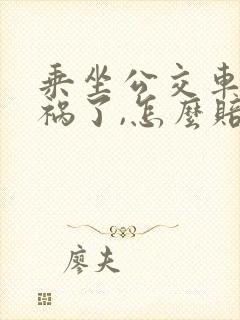 乘坐公交車
祸了,怎麼賠
廖夫